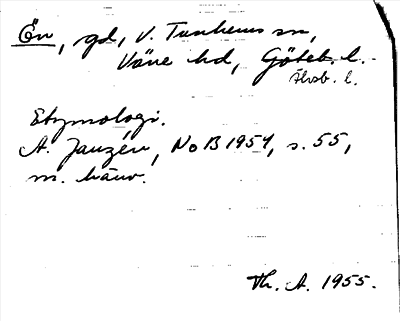 Ön, gd, V. Tunhems sn,
Väne hd, Göteb. l.
Älvsb. l.
Etymologi.
A. Janzén, NoB 1954, s. 55,
m. hänv.
Th. A. 1955.